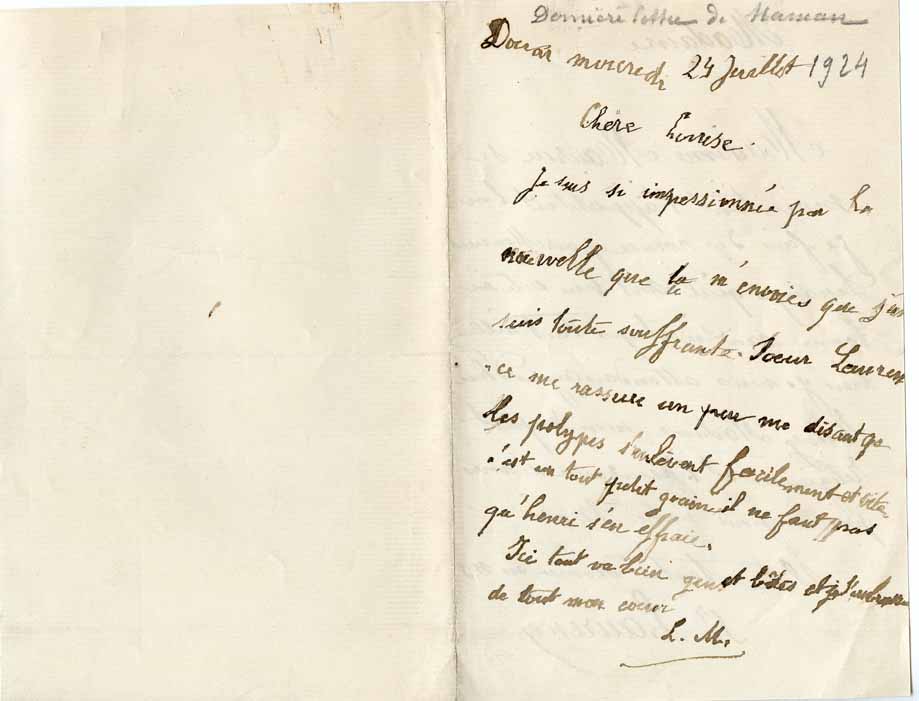 Dernière lettre de Maman
Douai mercredi 24 Juillet 1924
Chère Louise
Je suis si impressionnée par la
nouvelle que tu m'envoies que j'en
suis toute souffrante. Soeur Lauren
ce me rassure un peu me disant que
les polypes s'enlèvent facilement et vite
c'est un tout petit grain il ne faut pas
qu'henri s'en effraie.
Ici tout va bien gens et bêtes et je t'embrasse
de tout mon coeur
L. M.